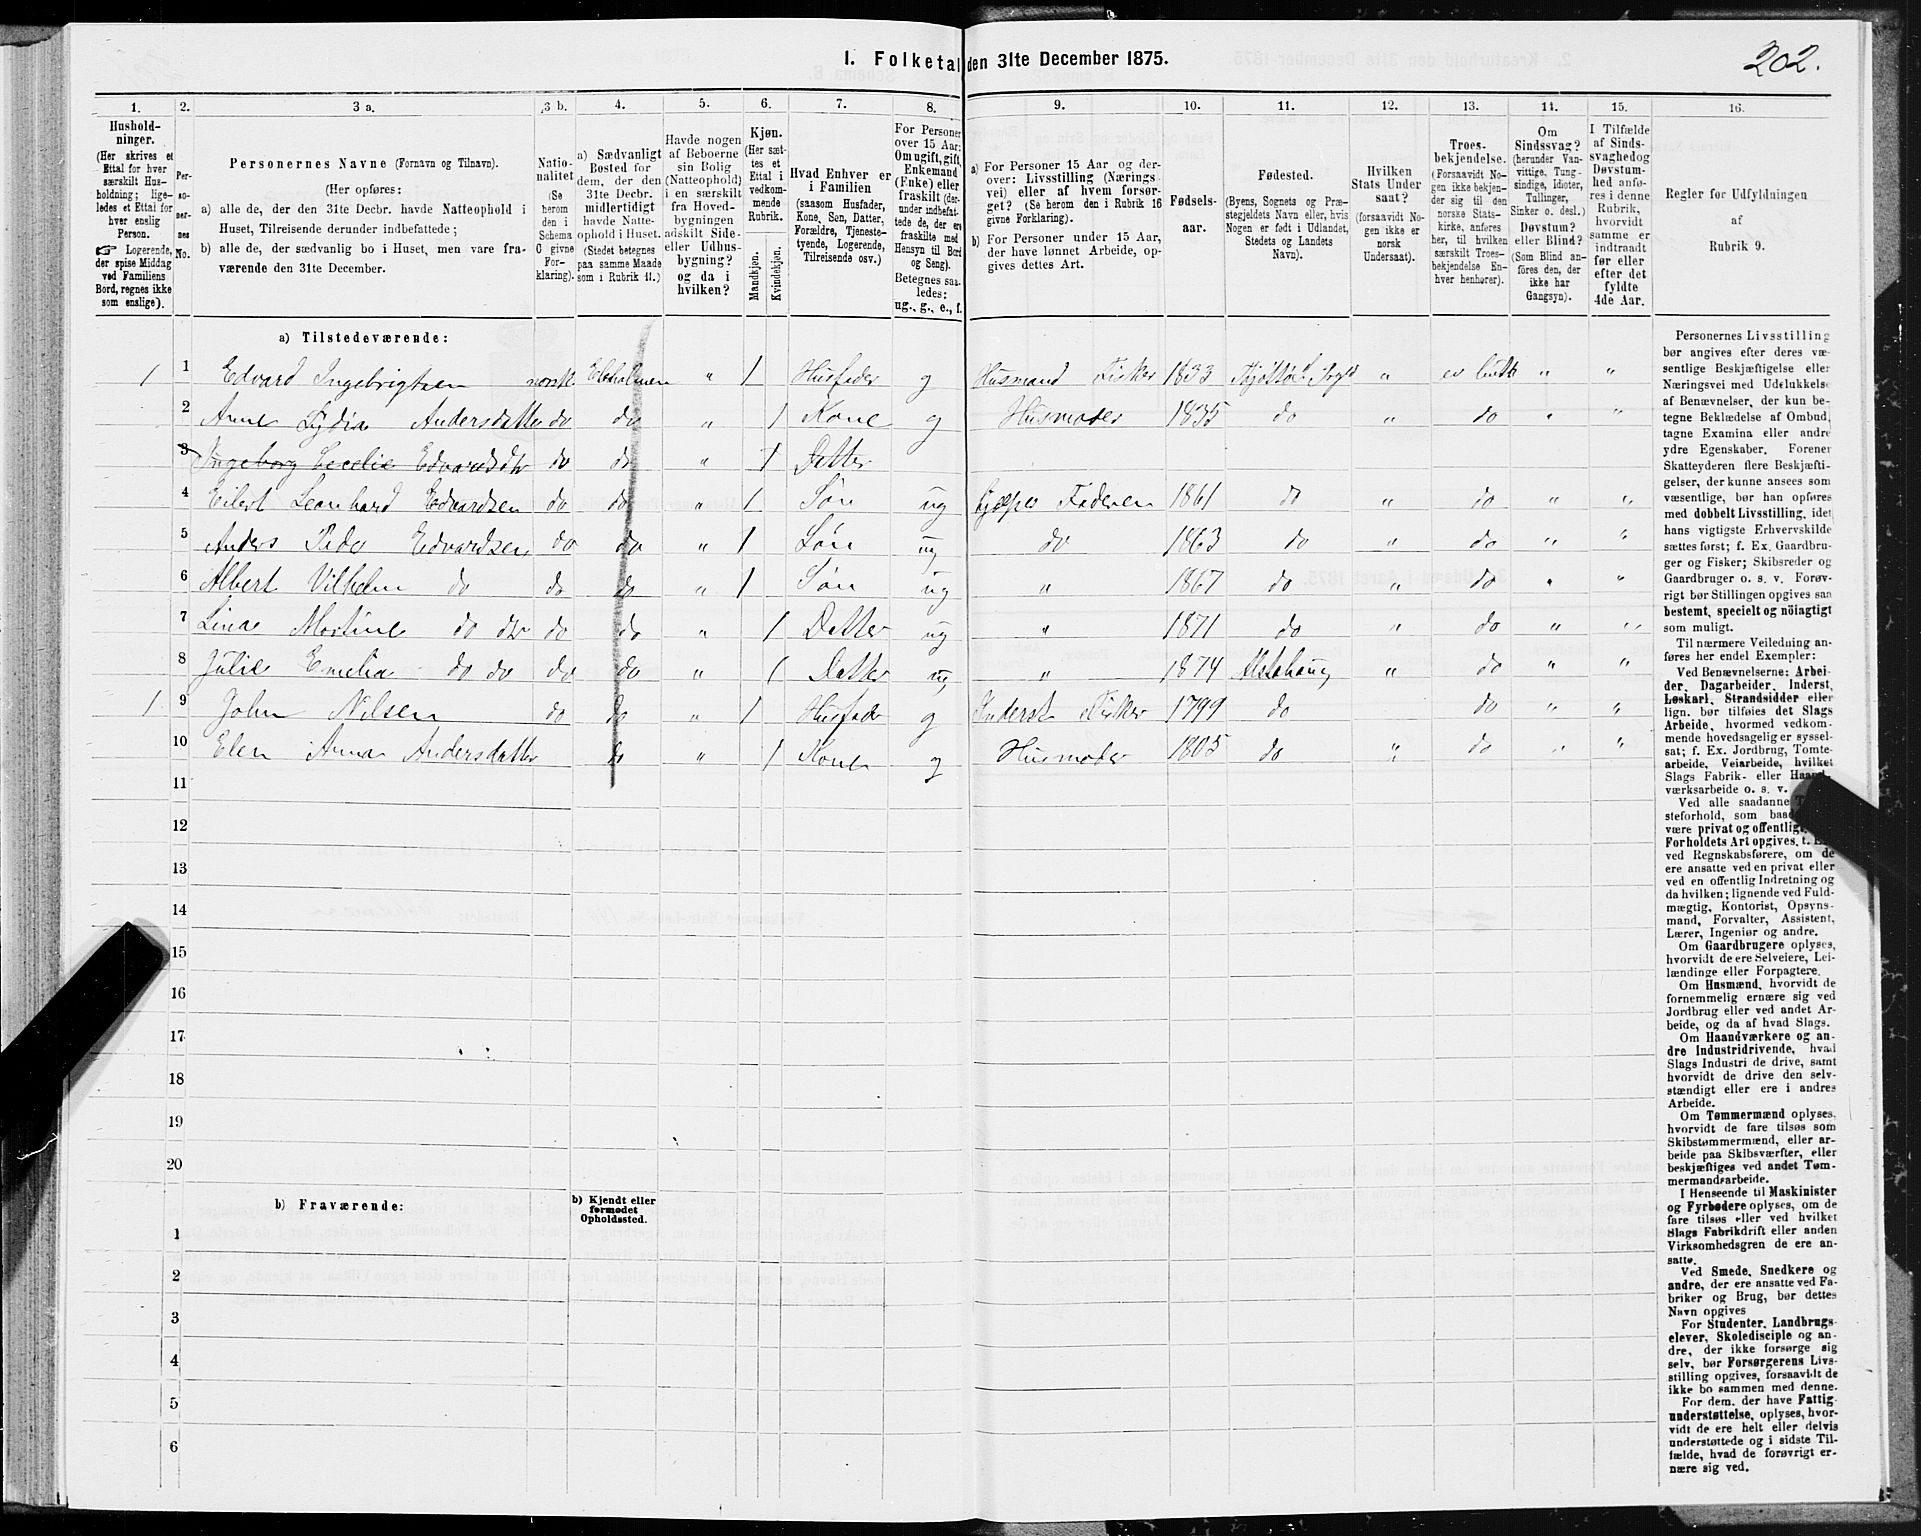 I. Folketal den 31te December 1875.
202.
1. 2. 3 a. 3 b. 4. 5. 6. 7. 8. 9. 10. 11. 12. 13. 14. 15. 16.
Hushold-
ninger.
(Her skrives et
Ettal for hver
særskilt Hus-
holdning; lige-
ledes et Ettal for
hver enslig
Person.
☞ Logerende,
der spise Middag
ved Familiens
Bord, regnes ikke
som enslige).
Per-
so-
ner-
nes
No.
Personernes Navne (Fornavn og Tilnavn).
(Her opføres:
a) alle de, der den 31te Decbr. havde Natteophold i
Huset, Tilreisende derunder indbefattede;
b) alle de, der sædvanlig bo i Huset, men vare fra-
værende den 31te December.
Natio-
nalitet
(Se
herom
den i
Schema
O givne
For-
klaring).
a) Sædvanligt
Bosted for
dem, der den
31te Decbr.
midlertidigt
havde Natte-
ophold i Huset.
(Stedet betegnes
paa samme Maade
som i Rubrik 11.)
Havde nogen
af Beboerne
sin Bolig
(Natteophold)
i en særskilt
fra Hoved-
bygningen
adskilt Side-
eller Udhus-
bygning?
og da i
hvilken?
Kjøn.
(Her sæt-
tes et
Ettal i
vedkom-
mende
Rubrik.
Mandkjøn.
Kvindekjøn.
Hvad Enhver er
i Familien
(saasom Husfader,
Kone, Søn, Datter,
Forældre, Tjeneste-
tyende, Logerende,
Tilreisende osv.)
For Personer
over 15 Aar:
Om ugift, gift,
Enkemand
(Enke) eller
fraskilt (der-
under indbefat-
tede de, der ere
fraskilte med
Hensyn til Bord
og Seng).
Betegnes saa-
ledes:
ug., g., e., f.
a) For Personer 15 Aar og der-
over: Livsstilling (Nærings-
vei) eller af hvem forsør-
get? (Se herom den i Rubrik 16
givne Forklaring).
b) For Personer under 15 Aar,
der have lønnet Arbeide, op-
gives dettes Art.
Fødsels-
aar.
Fødested.
(Byens, Sognets og Præ-
stegjeldets Navn eller, hvis
Nogen er født i Udlandet,
Stedets og Landets
Navn).
Hvilken
Stats Under-
saat?
(forsaavidt No-
gen ikke er
norsk
Undersaat).
Troes-
bekjendelse.
(Forsaavidt No-
gen ikke bekjen-
der sig til den
norske Stats-
kirke, anføres
her, til hvilken
særskilt Troes-
bekjendelse En-
hver henhører).
Om
Sindssvag?
(herunder Van-
vittige, Tung-
sindige, Idioter,
Tullinger,
Sinker o. desl.)
Døvstum?
eller Blind?
(Som Blind an-
føres den, der
ikke har
Gangsyn).
I Tilfælde
af Sinds-
svaghed og
Døvstum-
hed anfø-
res i denne
Rubrik,
hvorvidt
samme er
indtraadt
før eller
efter det
fyldte
4de Aar.
Regler for Udfyldningen
af
Rubrik 9.
a) Tilstedeværende:
1 1 Edvard Ingebrigtsen norsk " 1 Husfader g Husmand Fisker 1833 " "
2 Anne Lydia Andersdatter do do " 1 Kone g Husmoder 1835 do " do " "
3 Ingeborg Cecelie Edvardsdtr do do " 1 Datter
4 Eilert Leonhard Edvardsen do do " 1 Søn ug hjælper Faderen 1861 do " do " "
5 Anders Edvardsen do do " 1 Søn ug do 1863 do " do " "
6 Albert Vilhelm do do do " 1 Søn ug " 1867 do " do " "
7 Lina Martine do dtr do do " 1 Datter ug " 1871 do " do " "
8 Julie Emelia do do do do " 1 Datter ug " 1874 Alstahoug " do " "
1 9 John Nilsen do do " 1 Husfader g Inderst Fisker 1799 do do " "
10 Elen Anna Andersdatter do " 1 Kone g Husmoder 1805 do " do " "
11
12
13
14
15
16
17
18
19
20
b) Fraværende:
b) Kjendt eller
formodet
Opholdssted.
1
2
3
4
5
6
Personernes Livsstilling
bør angives efter deres væ-
sentlige Beskjæftigelse eller
Næringsvei med Udelukkelse
af Benævnelser, der kun be-
tegne Beklædelse af Ombud,
tagne Examina eller andre
ydre Egenskaber. Forener
Skatteyderen flere Beskjæfti-
gelser, der kunne ansees som
væsentlige, bør han opføres
med dobbelt Livsstilling, idet
hans vigtigste Erhvervskilde
sættes først; f. Ex. Gaardbru-
ger og Fisker; Skibsreder og
Gaardbruger o. s. v. Forøv-
rigt bør Stillingen opgives saa
bestemt, specielt og nöiagtigt
som muligt.
Til nærmere Veiledning an-
føres her endel Exempler:
Ved Benævnelserne: Arbei-
der, Dagarbeider, Inderst,
Løskarl, Strandsidder eller
lign. bør tilføies det Slags
Arbeide, hvormed vedkom-
mende hovedsagelig er syssel-
sat; f. Ex. Jordbrug, Tomte-
arbeide, Veiarbeide, hvilket
Slags Fabrik- eller
værksarbeide o. s. v.
Ved alle saadanne
steforhold, som
være privat og offentlige,
Forholdets Art opgives, t.
ved Regnskabsførere, om de
ere ansatte ved en privat eller
ved en offentlig Indretning og
da hvilken; lignende ved Fuld-
mægtig, Kontorist, Opsyns-
mand, Forvalter, Assistent,
Lærer, Ingeniør og andre.
Om Gaardbrugere oplyses,
hvorvidt de ere Selveiere, Lei-
lændinge eller Forpagtere.
Om Husmænd, hvorvidt de
fornemmelig ernære sig ved
Jordbrug eller ved andet Ar-
beide, og da af hvad Slags.
Om Haandværkere og an-
dre Industridrivende, hvad
Slags Industri de drive, samt
hvorvidt de drive den selv-
stændigt eller ere i andres
Arbeide.
Om Tømmermænd oplyses,
hvorvidt de fare tilsøs som
Skibstømmermænd, eller ar-
beide paa Skibsværfter, eller
beskjæftiges ved andet Tøm-
mermandsarbeide.
I Henseende til Maskinister
og Fyrbødere oplyses, om de
fare tilsøs eller ved hvilket
Slags Fabrikdrift eller anden
Virksomhedsgren de ere an-
satte.
Ved Smede, Snedkere og
andre, der ere ansatte ved Fa-
briker og Brug, bør dettes
Navn opgives
For Studenter, Landbrugs-
elever, Skoledisciple og an-
dre, der ikke forsørge sig
selv, bør Forsørgerens Livs-
stilling opgives, forsaavidt de
ikke bo sammen med denne.
For dem, der have Fattig-
understøttelse, oplyses, hvor-
vidt de ere helt eller delvis
understøttede og i sidste Til-
fælde, hvad de forøvrigt er-
nære sig ved.